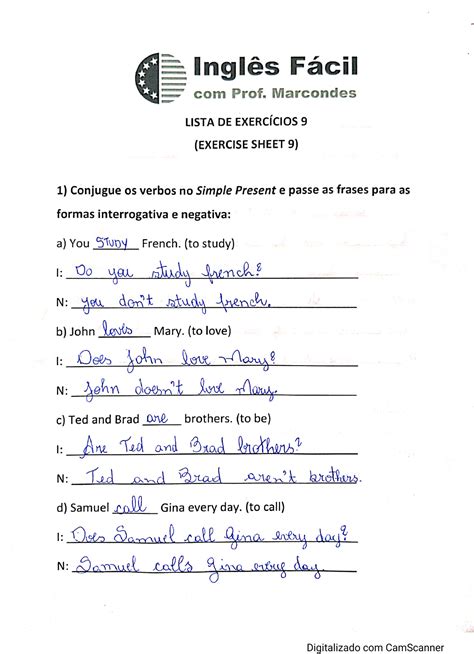 Inglês Fácil
com Prof. Marcondes
LISTA DE EXERCÍCIOS 9
(EXERCISE SHEET 9)
1) Conjugue os verbos no Simple Present e passe as frases para as
formas interrogativa e negativa:
a) You STUDY French. (to study)
I: Do you study french?
N: you don't study french.
b) John loves Mary. (to love)
I: Does John love Mary?
N: John doesn't love Mary.
c) Ted and Brad are brothers. (to be)
I: Are Ted and Brad brothers?
N: Ted and Brad aren't brothers.
d) Samuel call Gina every day. (to call)
I: Does Samuel call Gina every day?
N: Samuel calls Gina every day.
Digitalizado com CamScanner